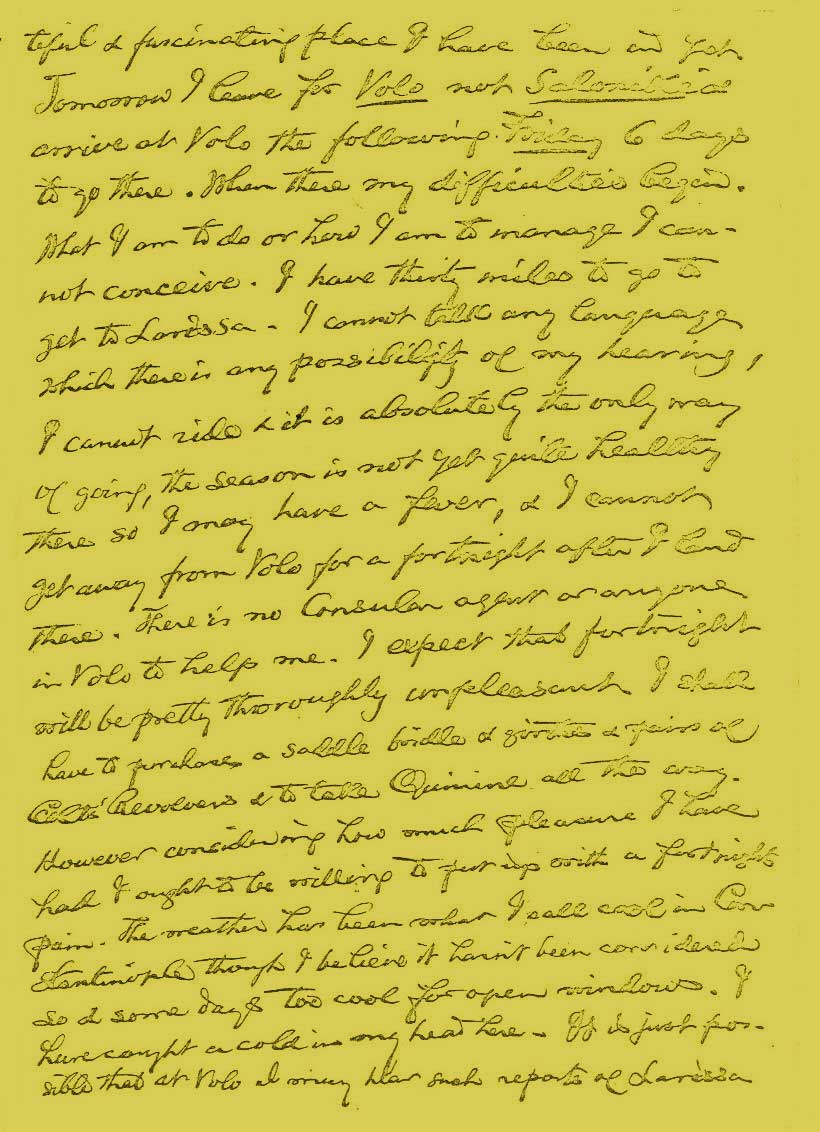 tiful & fascinating place I have been in yet
Tomorrow I leave for Volo not Salonika &
arrive at Volo the following Friday 6 days
to go there. When there my difficulties begin.
What I am to do or how I am to manage I can-
not conceive. I have thirty miles to go to
get to Larissa. I cannot talk any language
which there is any possibility of my hearing,
I cannot ride & it is absolutely the only way
of going, the season is not yet quite healthy
there so I may have a fever, & I cannot
get away from Volo for a fortnight after I land
there. There is no Consular agent or anyone
in Volo to help me. I expect that fortnight
will be pretty thoroughly unpleasant. I shall
have to purchase a saddle bridle & girths & pairs of
Colts' Revolvers & to take Quinine all the way.
However considering how much pleasure I have
had I ought to be willing to put up with a fortnights
pain. The weather has been what I call cool in Con-
stantinople though I believe it hasn't been considered
so & some days too cool for open windows. I
have caught a cold in my head here. It is just pos-
sible that at Volo I may hear such reports of Larissa